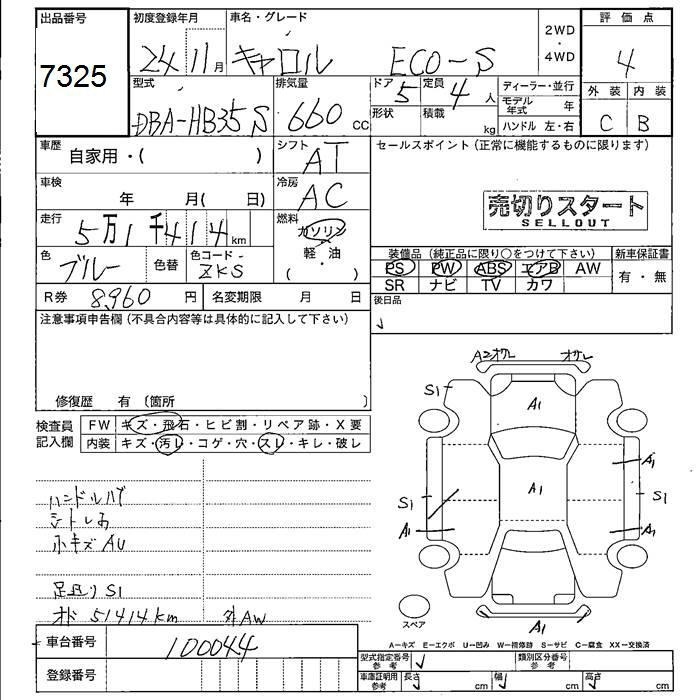 出品番号
7325
初度登録年月
24 11 月
車名・グレード
キャロル ECO-S
2WD
・
4WD
評価点
4
外装 内装
C B
型式
DBA-HB35S
排気量
660 cc
ドア 5
定員 4 人
形状
積載 kg
ディーラー・並行
モデル年式 年
ハンドル 左・右
車歴
自家用・( )
シフト
AT
セールスポイント(正常に機能するものに限ります)
売切りスタート
SELLOUT
車検
年 月( 日)
冷房
AC
走行
5万1千414 km
燃料
ガソリン
・
軽・油
( )
色
ブルー
色替
色コード
ZKS
装備品(純正品に限り○をつけて下さい)
PS PW ABS エアB AW
SR ナビ TV カワ
新車保証書
有・無
R券 8960 円
名変期限 月 日
後日品
注意事項申告欄(不具合内容等は具体的に記入して下さい)
修復歴 有〔箇所 〕
検査員
記入欄
FW キズ・飛石・ヒビ割・リペア跡・X要
内装 キズ・汚レ・コゲ・穴・スレ・キレ・破レ
小キズ AU
足廻りS1
51414km
外AW
車台番号 100044
登録番号
S1
A1
A1
A1
S1
S1
A1
A1
A1
スペア
A=キズ E=エクボ U=凹み W=補修跡 S=サビ C=腐食 XX=交換済
型式指定番号
参考
類別区分番号
参考
車庫証明用
参考
長さ cm
幅 cm
高さ cm